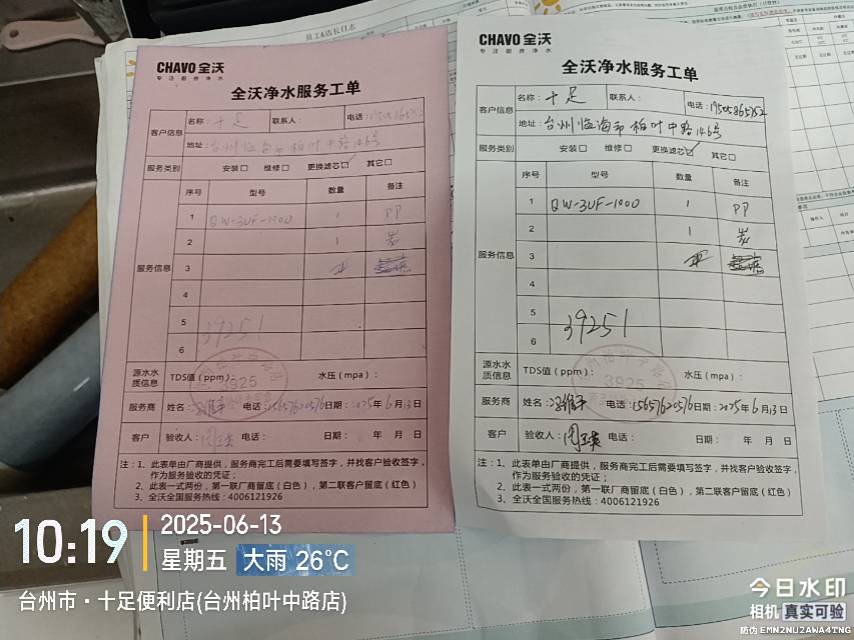 CHAVO 全沃
专注厨房净水
全沃净水服务工单
客户信息
名称：十足
联系人：
电话：
地址：台州临海市柏叶中路146号
服务类别
安装□ 维修□ 更换滤芯□ 其它□
服务信息
序号 型号 数量 备注
1 QW-3UF-1000 1 PP
2 1 炭
3
4
5
6
39251
源水水质信息
TDS值（ppm）：
水压（mpa）：
3925
服务商
姓名：
电话：15657620576
日期：2025年6月13日
客户
验收人：
电话：
日期： 年 月 日
注：1、此表单由厂商提供，服务商完工后需要填写签字，并找客户验收签字，
作为服务验收的凭证；
2、此表一式两份，第一联厂商留底（白色），第二联客户留底（红色）
3、全沃全国服务热线：4006121926
CHAVO 全沃
专注厨房净水
全沃净水服务工单
客户信息
名称：十足
联系人：
电话：
地址：台州临海市柏叶中路146号
服务类别
安装□ 维修□ 更换滤芯☑ 其它□
服务信息
序号 型号 数量 备注
1 QW-3UF-1000 1 PP
2 1 炭
3
4
5
6
39251
源水水质信息
TDS值（ppm）：
水压（mpa）：
3925
服务商
姓名：
电话：15657620576
日期：2025年6月13日
客户
验收人：
电话：
日期： 年 月 日
注：1、此表单由厂商提供，服务商完工后需要填写签字，并找客户验收签字，
作为服务验收的凭证；
2、此表一式两份，第一联厂商留底（白色），第二联客户留底（红色）
3、全沃全国服务热线：4006121926
10:19
2025-06-13
星期五 大雨 26°C
台州市·十足便利店(台州柏叶中路店)
今日水印
相机 真实可验
防伪 EMN2NU2AWA4TNG